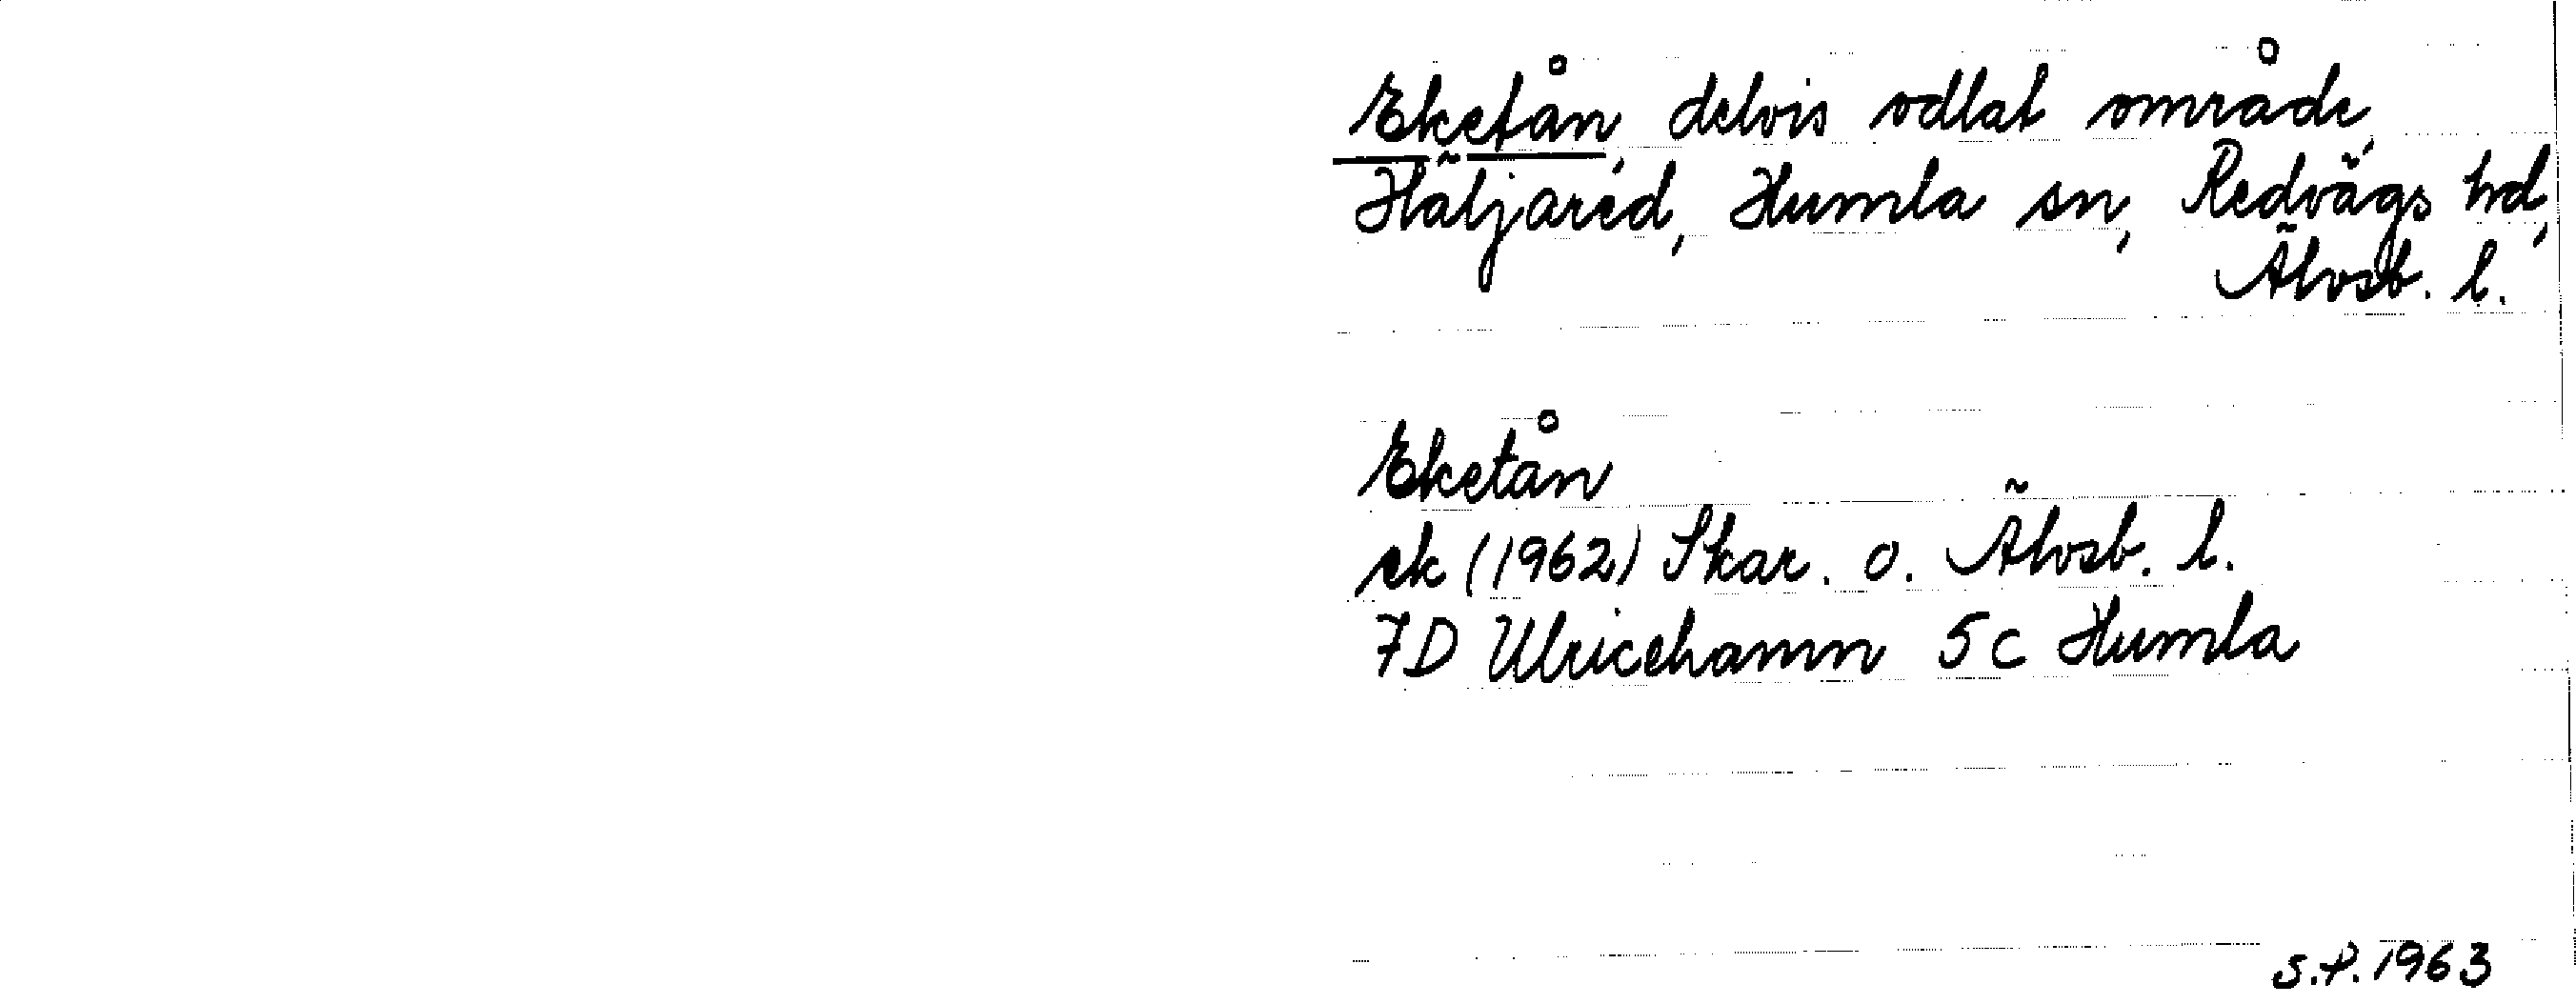 Eketån, delvis odlat område,
Häljared, Humla sn, Redvägs hd,
Älvsb. l.
Eketån
ek (1962) Skar. o. Älvsb. l.
7D Ulricehamn 5c Humla
S.P. 1963